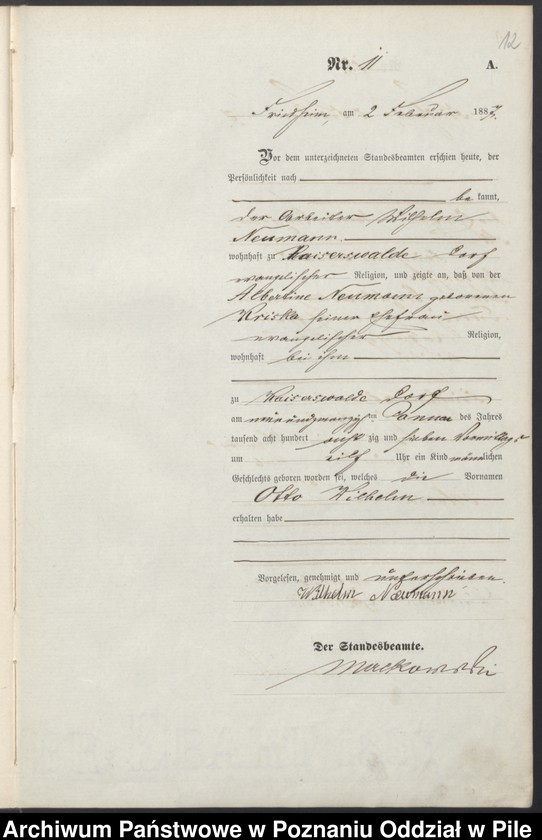 12
Nr. 11 A.
Friedheim, am 2 Februar 1887.
Vor dem unterzeichneten Standesbeamten erschien heute, der
Persönlichkeit nach
be kannt,
der Arbeiter Wilhelm
Neumann
wohnhaft zu Kaiserswalde Dorf
evangelischer Religion, und zeigte an, daß von der
Albertine Neumann geborenen
Kriska seiner Ehefrau
evangelischer Religion,
wohnhaft bei ihm
zu Kaiserswalde Dorf
am neun und zwanzig ten Januar des Jahres
tausend acht hundert acht zig und sieben Vormittags
um elf Uhr ein Kind männlichen
Geschlechts geboren worden sei, welches die Vornamen
Otto Wilhelm
erhalten habe
Vorgelesen, genehmigt und unterschrieben.
Wilhelm Neumann
Der Standesbeamte.
Mackowski
Archiwum Państwowe w Poznaniu Oddział w Pile